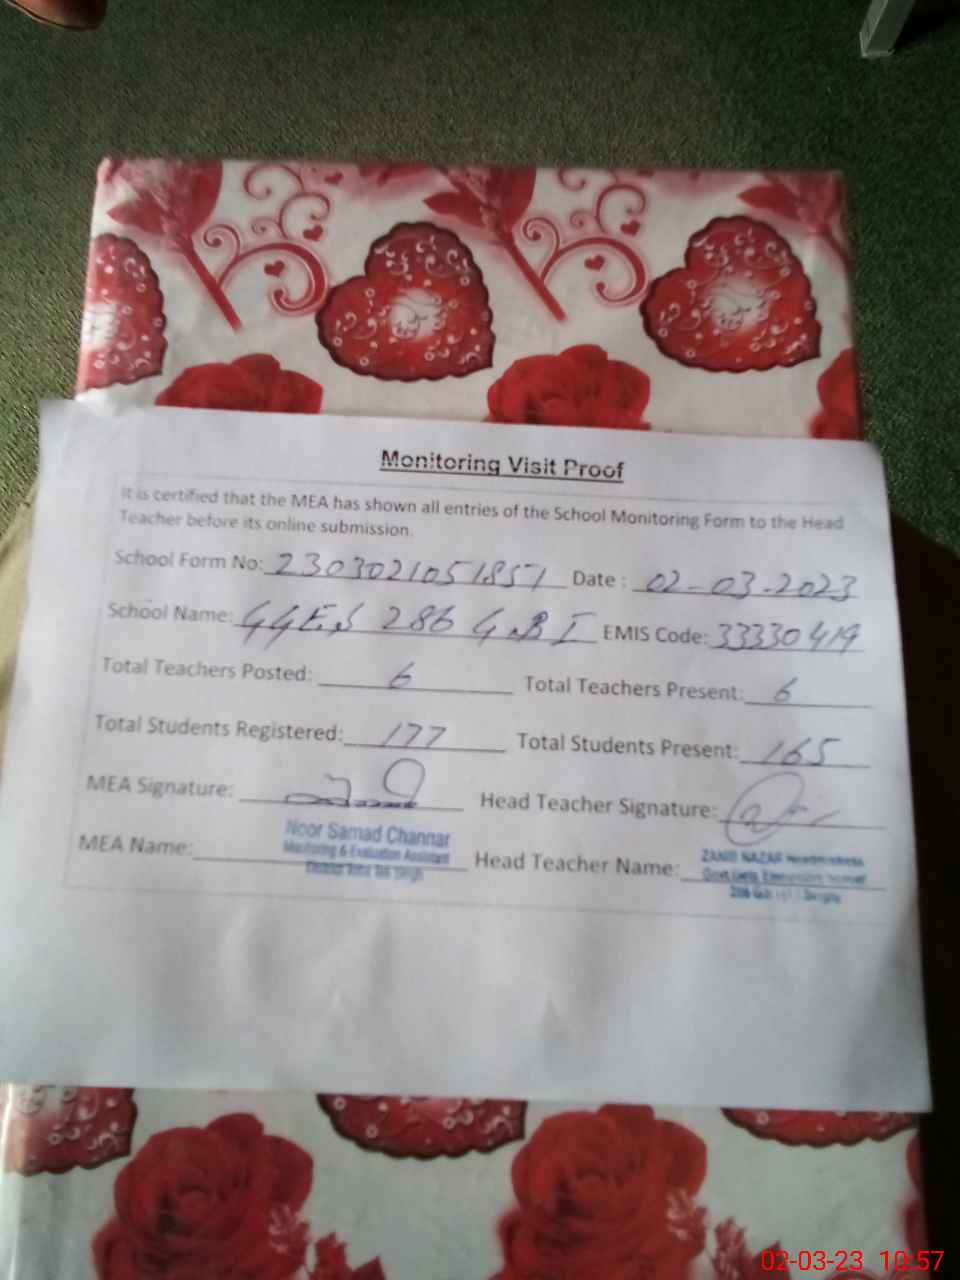 Monitoring Visit Proof
It is certified that the MEA has shown all entries of the School Monitoring Form to the Head
Teacher before its online submission.
School Form No: 2303021051851 Date : 02-03-2023
School Name: GGE.S 286 G.B I EMIS Code: 33330419
Total Teachers Posted: 6 Total Teachers Present: 6
Total Students Registered: 177 Total Students Present: 165
MEA Signature: Head Teacher Signature:
MEA Name: Noor Samad Channar Head Teacher Name: ZANIB NAZAR Headmistress
Monitoring & Evaluation Assistant
District Toba Tek Singh
02-03-23 10:57